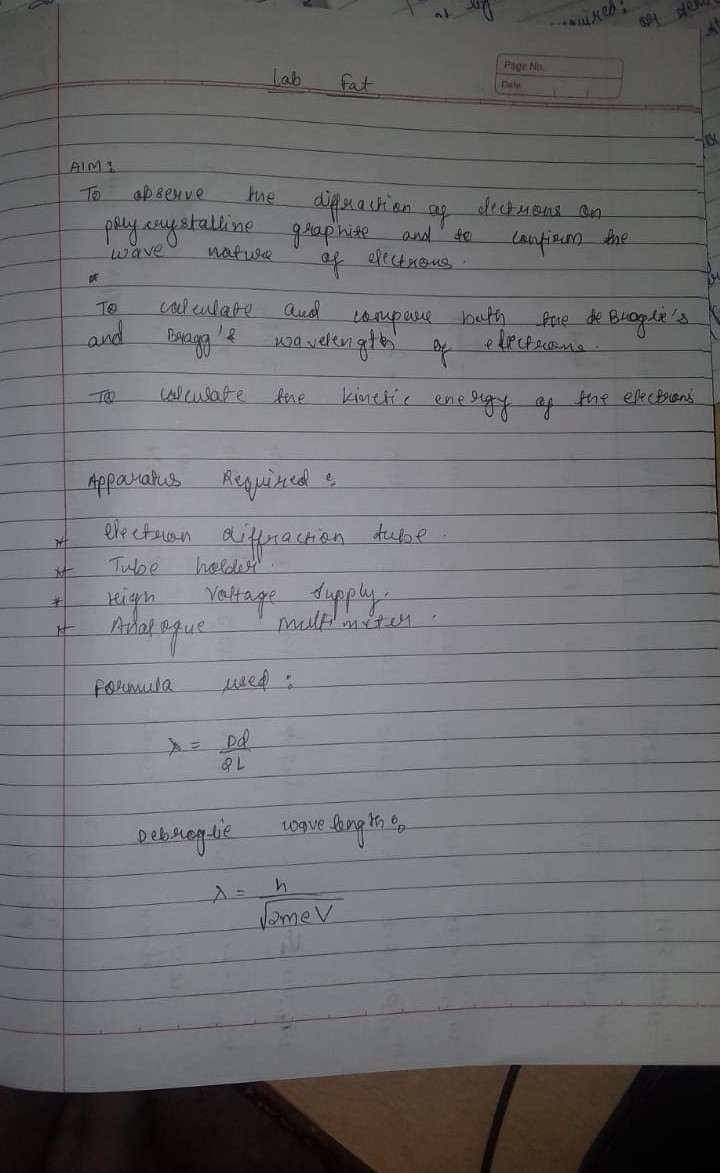 Page No.
Date
Lab Fat
AIM :
To observe the diffraction of electrons on
polycrystalline graphite and to confirm the
wave nature of electrons.
To calculate and compare both the de Broglie's
and Bragg's wavelength of electrons.
To calculate the kinetic energy of the electrons
Apparatus Required :
* Electron diffraction tube.
* Tube holder.
* High Voltage Supply.
* Analogue multimeter.
Formula used :
λ = Dd
2L
Debroglie wavelength :
λ = h
√2meV